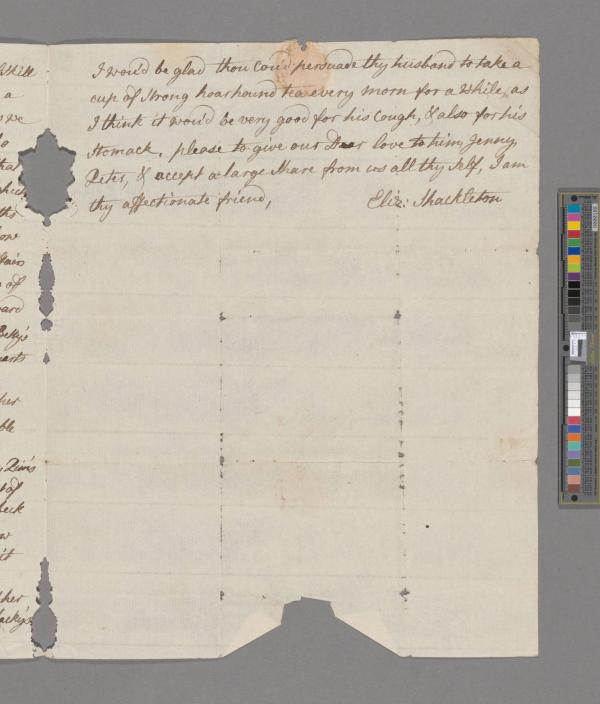 Skill
a
we
that
check
the
one
of
Becky's
parts
her
ble
of
neck
it
ther
Jacky's
I wou'd be glad thou cou'd persuade thy husband to take a
cup of strong hoarhound tea every morn for a while, as
I think it wou'd be very good for his cough, & also for his
stomack. please to give our Dear love to him, Jenny,
Peter, & accept a large share from us all thy self, I am
thy affectionate friend,
Eliz: Shackleton